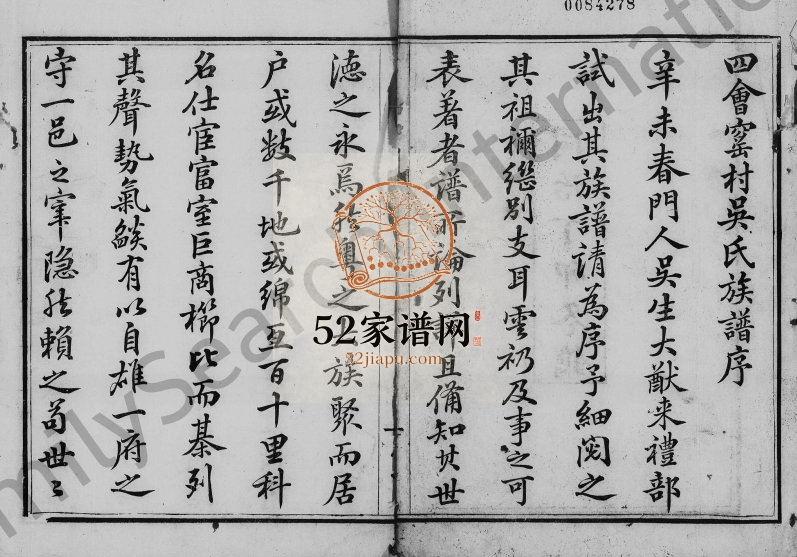 0084278
四會窰村吳氏族譜序
辛未春門人吳生大猷来禮部
試出其族譜請為序予細閱之
其祖禰繼別支耳雲礽及事之可
表著者譜所論列詳且備知其世
德之永焉之族聚而居
户或数千地或綿亙百十里科
名仕宦富室巨商櫛比而棊列
其聲勢氣燄有以自雄一府之
守一邑之宰隐然賴之苟世〻
52家谱网
52jiapu.com
FamilySearch International